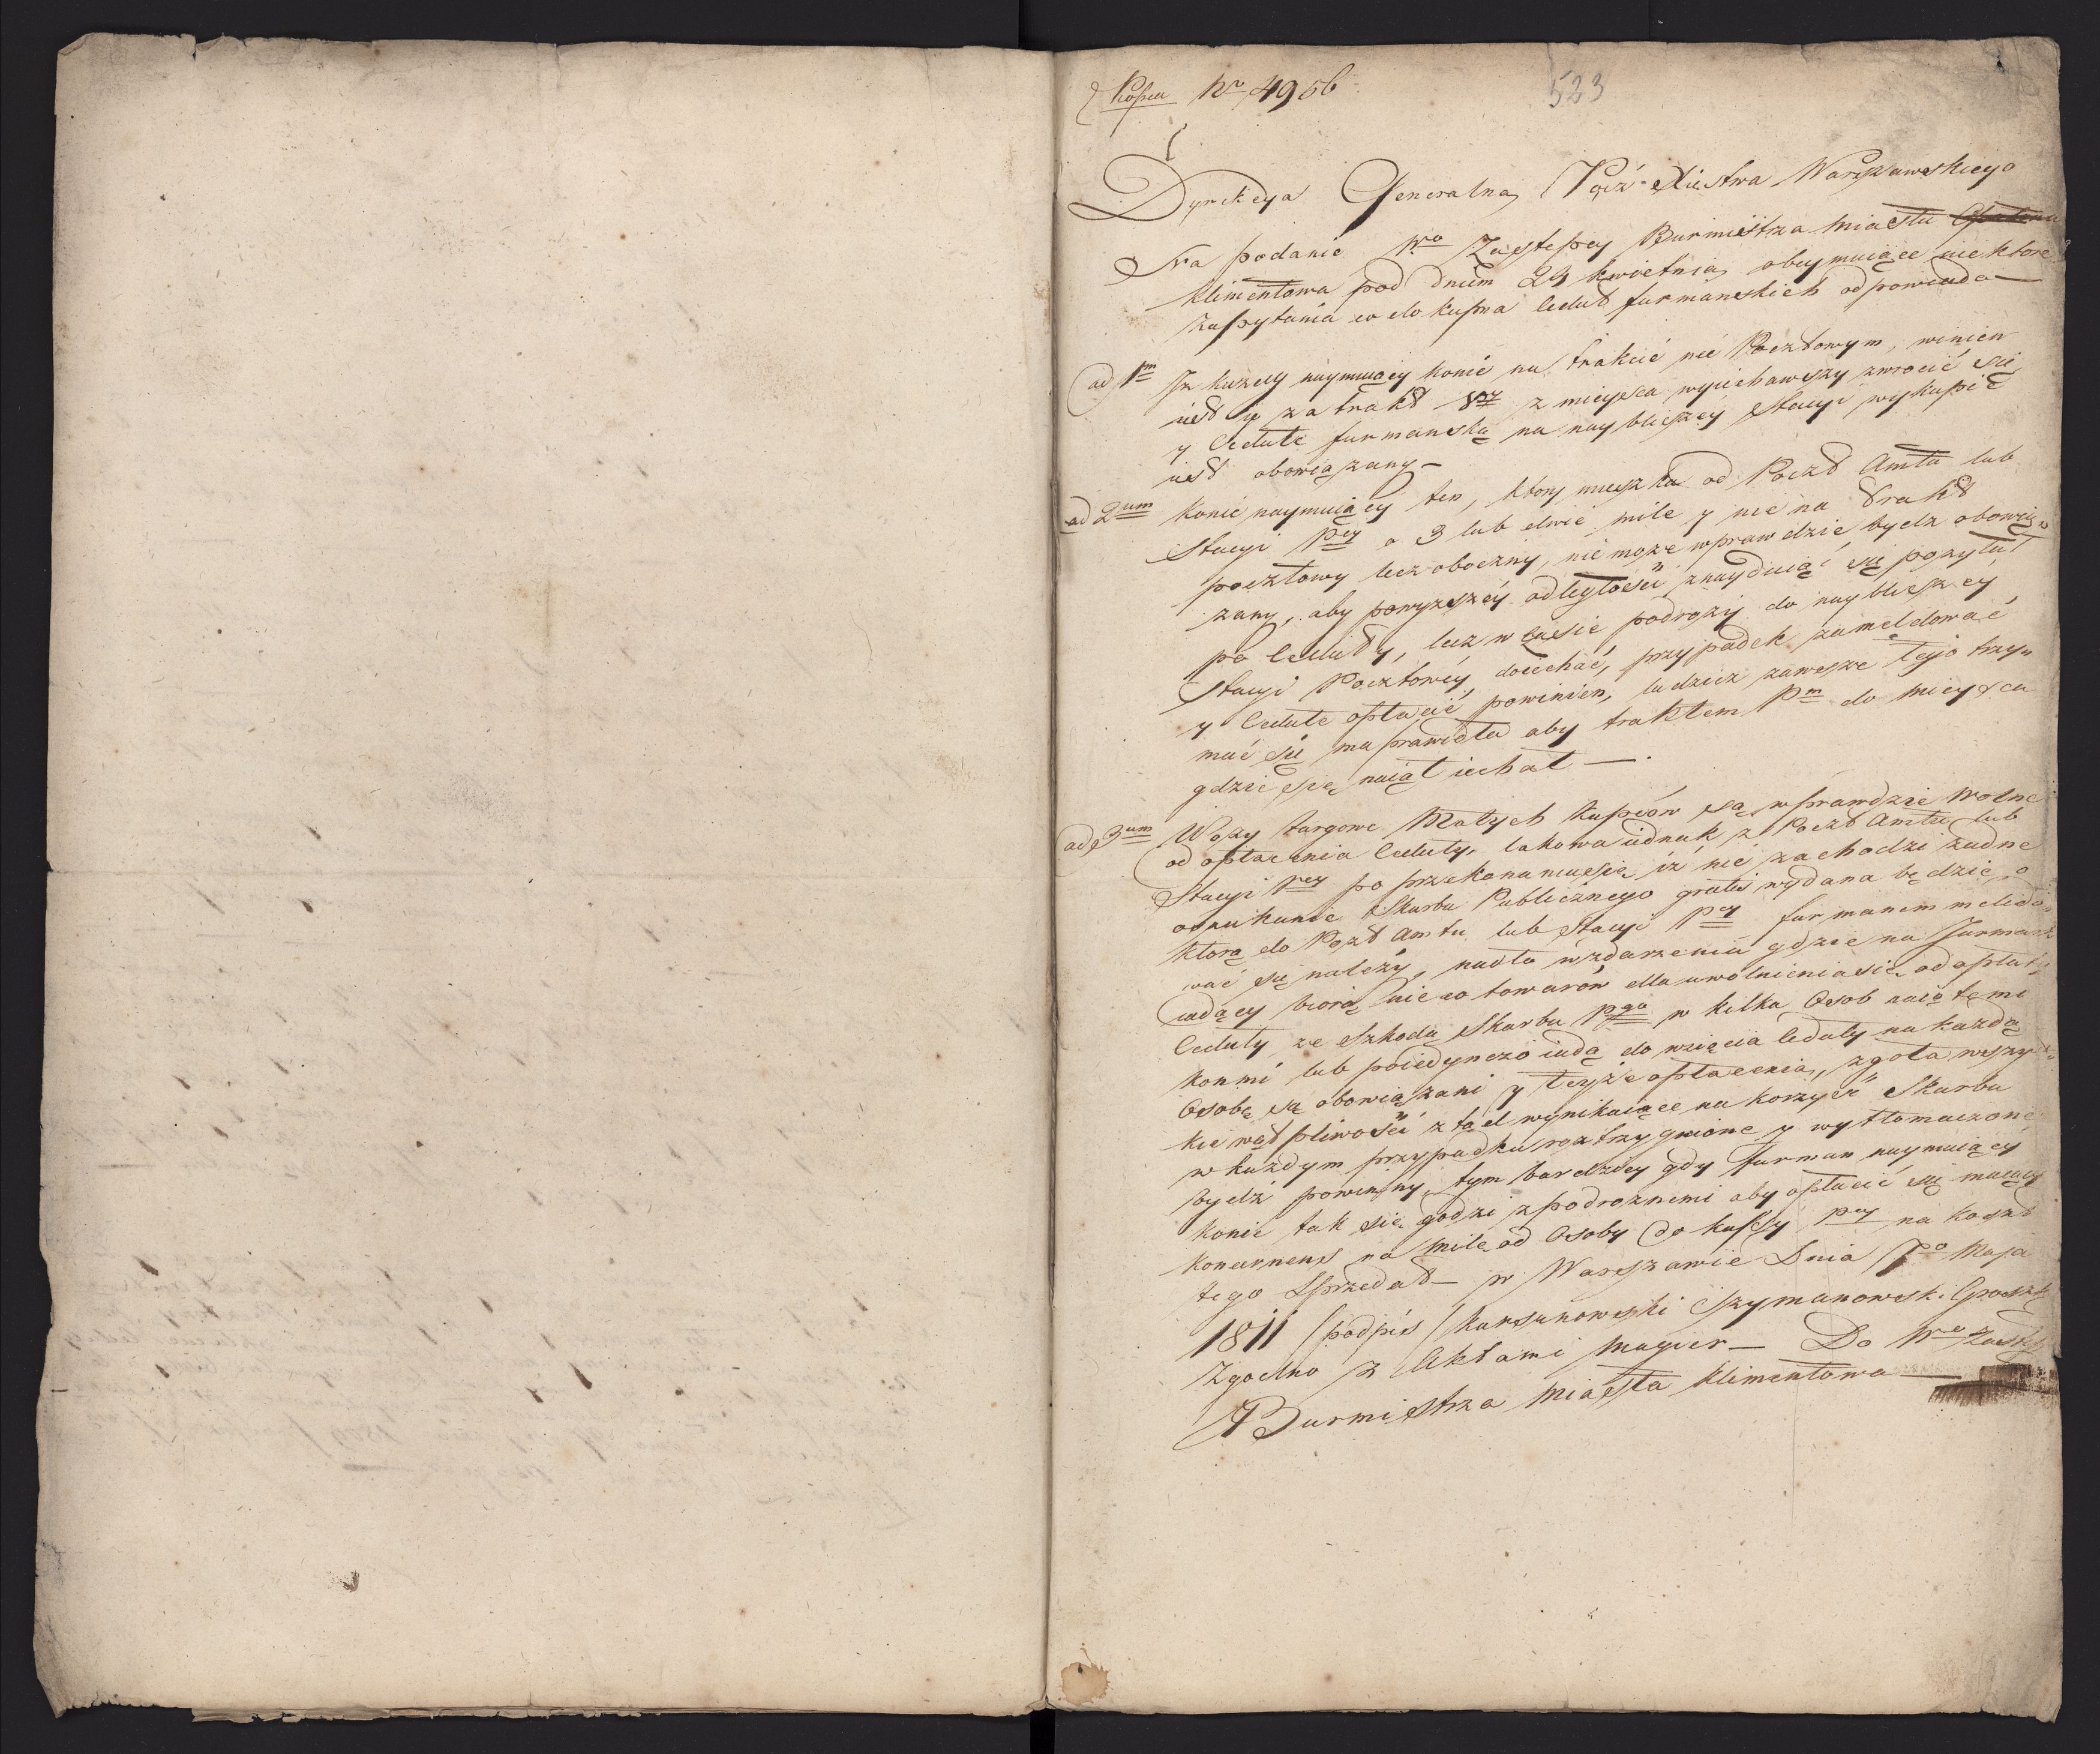 Kopia Nro 4956
523
Dyrekcya Generalna Pocz: Xięstwa Warszawskiego
Na podanie Wo Zastępcy Burmistrza Miasta
Klimentowa pod dniem 29 kwietnia obeymuiące niektore
zapytania co do kupna Cedut furmanskich odpowiada —
ad 1m Iż kazdy naymuiący konie na trakcie nie Pocztowym, winien
iest się za trakt z mieysca wyiechawszy zwrocić się
y Cedułe furmanską na naybliższey Stacyi wykupić
iest obowiązany —
ad 2um Konie naymuiący ten, ktory mieszka od Poczt Amtu lub
Stacyi Pey o 3 lub dwie mile y nie na Trakt
pocztowy lecz oboczny, nie może wprawdzie bydz obowią„
zany, aby powyzszey odległości znayduiąc się posyłał
po Ceduły, lecz w czasie podrozy do naybliszey
Stacyi Pocztowey doiechać, przypadek zameldować
y Cedułe opłacić powinien, tudzież zawsze tego trzy„
mać się ma prawidła aby traktem Pm do mieysca
gdzie się naiął iechał —.
ad 3um Wozy targowe Małych kupców są wprawdzie wolne
od opłacenia Ceduły, takowa iednak z Poczt Amtu lub
Stacyi Pey po przekonaniu się iż nie zachodzi żadne
oszukanie Skarbu Publicznego gratis wydana będzie, o
ktorą do Poczt Amtu lub Stacyi Pey furmanem meldo„
wać się należy, nadto w zdarzeniu gdzie na Jarmark
iadący biorą nieco towarów dla uwolnienia się od opłaty
Ceduły ze szkodą Skarbu Pgo w kilka Osob naiętemi
konmi lub poiedynczo iadą do wzięcia Ceduły na każdą
Osobę są obowiązani y teyże opłacenia, zgoła wszyst„
kie wątpliwości ztąd wynikaiące na korzyść Skarbu
w każdym przypadku roztrzygnione y wytłomaczone
bydź powinny, tym bardziey gdy furman naymuiący
konie tak się godzi z podroznemi aby opłacić się maiący
na milę od Osoby do kassy Pey na koszt
tego — w Warszawie Dnia 7o Maja
1811 /podpis/ Szymanowski
Zgodno z Aktami Magier — Do Wo Zastęp
Burmistrza Miasta Klimentowa —